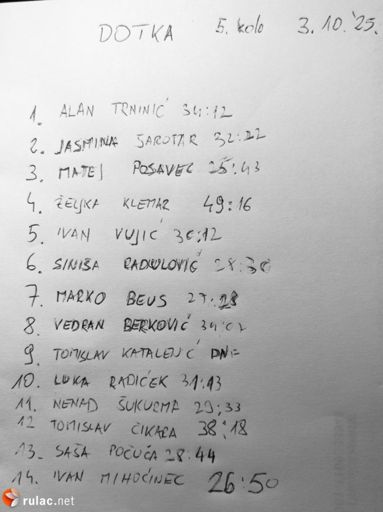 DOTKA 5. kolo 3.10.'25.
1. ALAN TRNINIĆ 34:12
2. JASMINA ŠAROTAR 32:22
3. MATEJ POSAVEC 25:43
4. ŽELJKA KLEMAR 49:16
5. IVAN VUJIĆ 30:12
6. SINIŠA RADULOVIĆ 28:30
7. MARKO BEUS 27:28
8. VEDRAN BERKOVIĆ
9. TOMISLAV KATALENIĆ DNF
10. LUKA RADIČEK 31:43
11. NENAD ŠUKURMA 29:33
12 TOMISLAV ČIKARA 38:18
13. SAŠA POČUČA 28:44
14. IVAN MIHOĆINEC 26:50
rulac.net